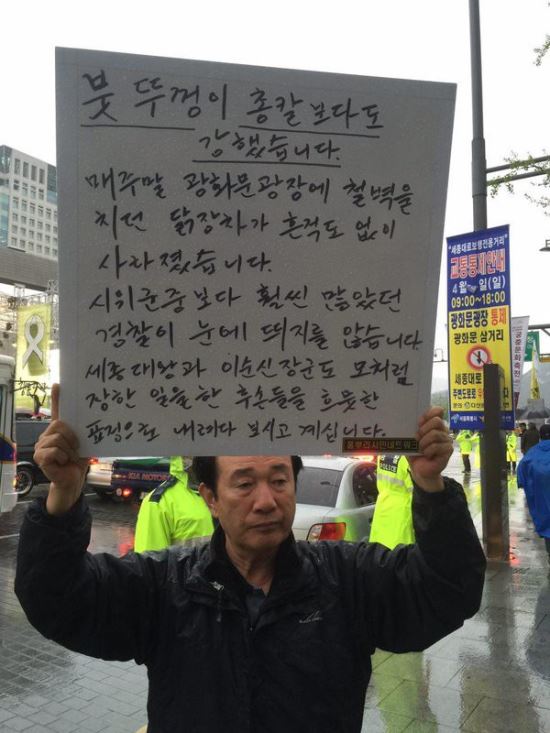 붓 뚜껑이 총칼보다도
강했습니다.
매주말 광화문광장에 철벽을
치던 닭장차가 흔적도 없이
사라졌습니다.
시위군중보다 훨씬 많았던
경찰이 눈에 띄지를 않습니다.
세종대왕과 이순신장군도 모처럼
장한 일을한 후손들을 흐뭇한
표정으로 내려다 보시고 계십니다.
풀뿌리시민네트워크
"세종대로보행전용거리"
교통통제안내
4월 일(일)
09:00~18:00
광화문광장 통제
광화문 삼거리
세종대로
주변도로로
KIA MOTORS
POLICE